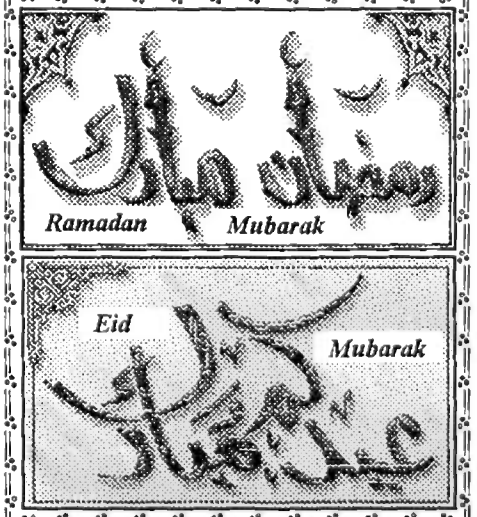 رمضان مبارك
Ramadan Mubarak
Eid
Mubarak
عيد مبارك